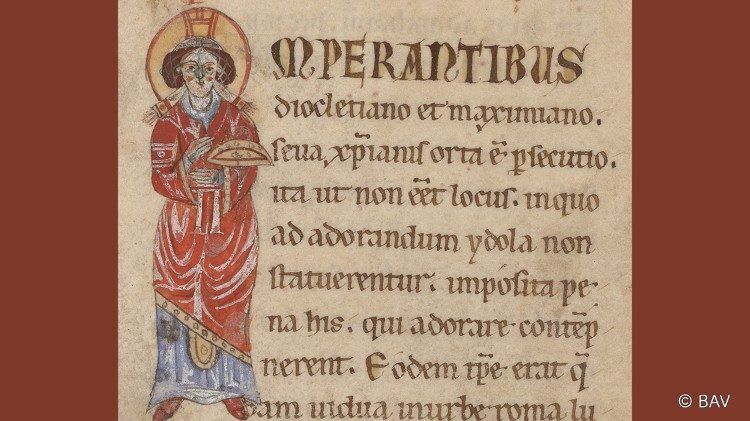 MPERANTIBUS
diocletiano et maximiano.
seua xp̄ianis orta ē p̱secutio.
ita ut non eēt locus. in quo
ad adorandum ydola non
statuerentur. imposita pe
na his. qui adorare contēp
nerent. Eodem tp̄e erat q̄
dam uidua in urbe roma lu
© BAV